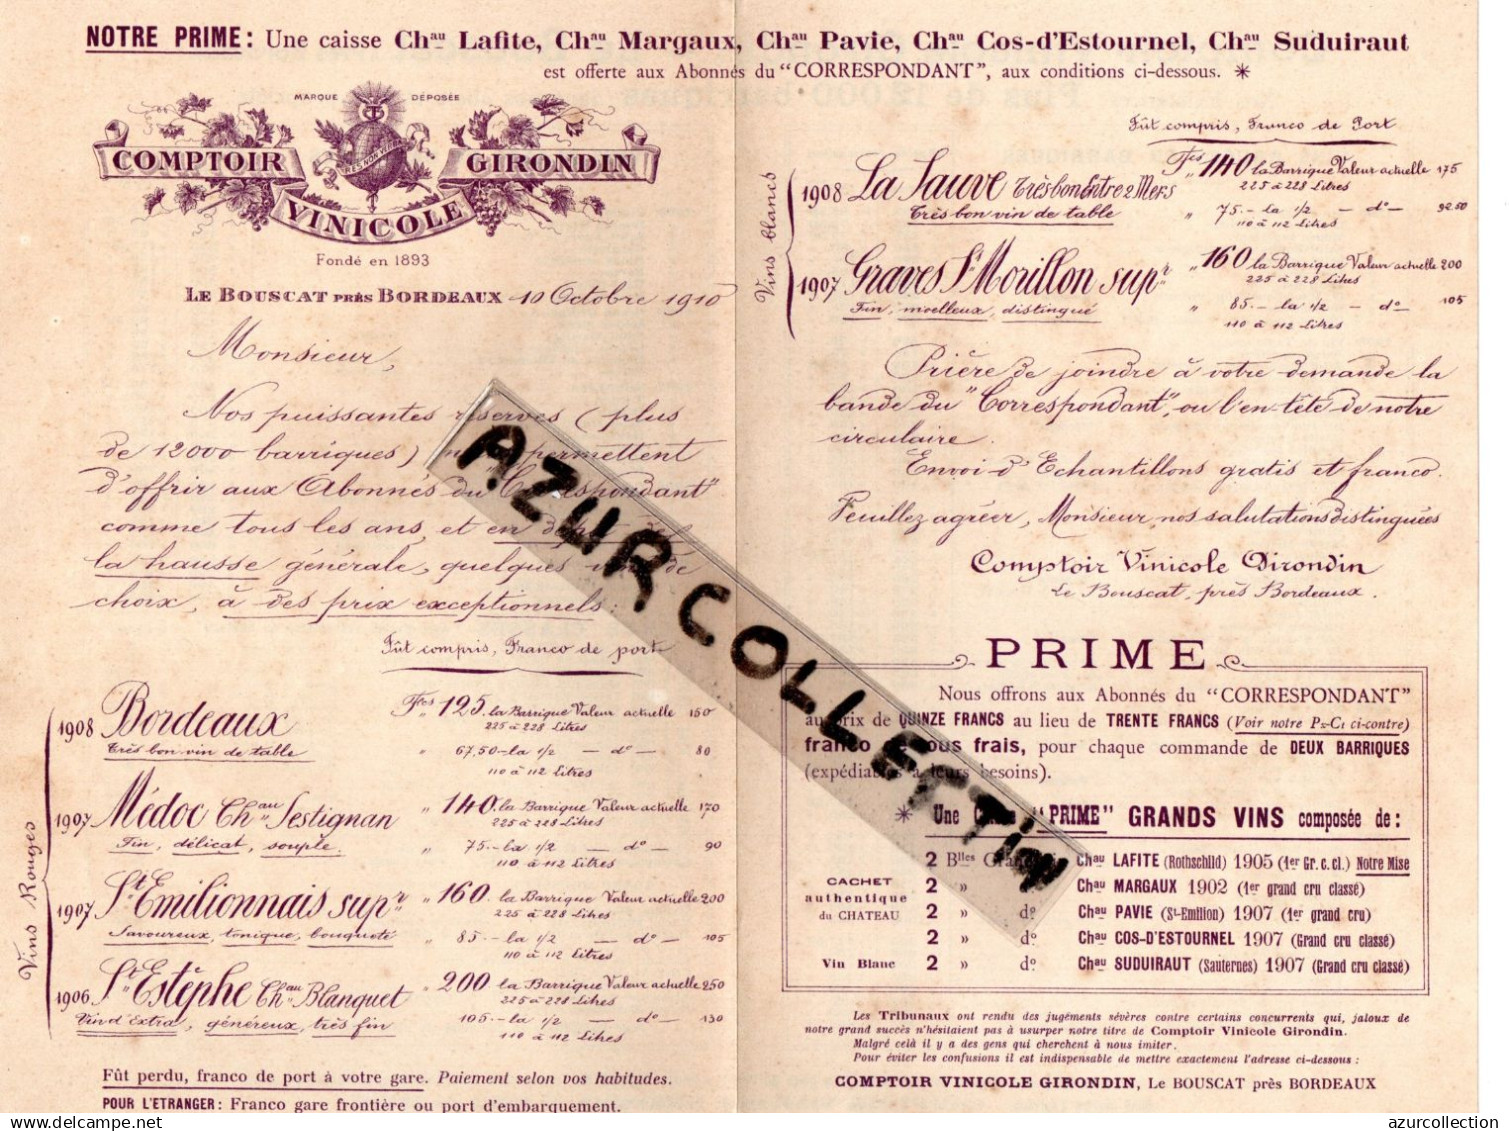 NOTRE PRIME : Une caisse Chau Lafite, Chau Margaux, Chau Pavie, Chau Cos-d'Estournel, Chau Suduiraut
est offerte aux Abonnés du "CORRESPONDANT", aux conditions ci-dessous. *
MARQUE DÉPOSÉE
RES NON VERBA
COMPTOIR GIRONDIN
VINICOLE
Fondé en 1893
LE BOUSCAT PRÈS BORDEAUX 10 Octobre 1910
Monsieur,
Nos puissantes réserves (plus
de 12000 barriques) permettent
d'offrir aux Abonnés du "Correspondant"
comme tous les ans, et en
la hausse générale, quelques de
choix, à des prix exceptionnels :
Fût compris, Franco de port
Vins Rouges
1908 Bordeaux Frcs 125. la Barrique Valeur actuelle 150
225 à 228 Litres
Très bon vin de table " 67,50 - la 1/2 - do - 80
110 à 112 Litres
1907 Médoc Chau Sestignan " 140. la Barrique Valeur actuelle 170
225 à 228 Litres
Fin, délicat, souple. " 75. - la 1/2 - do - 90
110 à 112 Litres
1907 St Emilionnais supr " 160 la Barrique Valeur actuelle 200
225 à 228 Litres
Savoureux, tonique, bouqueté " 85. - la 1/2 - do - 105
110 à 112 Litres
1906 St Estèphe Chau Blanquet " 200 la Barrique Valeur actuelle 250
225 à 228 Litres
Vin d'Extra, généreux, très fin 105. - la 1/2 - do - 130
110 à 112 Litres
Fût perdu, franco de port à votre gare. Paiement selon vos habitudes.
POUR L'ETRANGER : Franco gare frontière ou port d'embarquement.
Fût compris, Franco de Port
Vins blancs
1908 La Sauve Très bon Entre 2 Mers Frcs 140 la Barrique Valeur actuelle 175
225 à 228 Litres
Très bon vin de table " 75. - la 1/2 - do - 92.50
110 à 112 Litres
1907 Graves St Morillon supr " 160 la Barrique Valeur actuelle 200
225 à 228 Litres
Fin, moelleux, distingué " 85. - la 1/2 - do - 105
110 à 112 Litres
Prière de joindre à votre demande la
bande du "Correspondant", ou l'en-tête de notre
circulaire.
Envoi d'Echantillons gratis et franco.
Veuillez agréer, Monsieur, nos salutations distinguées
Comptoir Vinicole Girondin
Le Bouscat, près Bordeaux.
PRIME
Nous offrons aux Abonnés du "CORRESPONDANT"
au prix de QUINZE FRANCS au lieu de TRENTE FRANCS (Voir notre Px-Ct ci-contre)
franco de tous frais, pour chaque commande de DEUX BARRIQUES
(expédiables à leurs besoins).
* Une "PRIME" GRANDS VINS composée de :
2 Blles Chau LAFITE (Rothschild) 1905 (1er Gr. c. cl.) Notre Mise
CACHET authentique du CHATEAU
2 » Chau MARGAUX 1902 (1er grand cru classé)
2 » do Chau PAVIE (St-Emilion) 1907 (1er grand cru)
2 » do Chau COS-D'ESTOURNEL 1907 (Grand cru classé)
Vin Blanc 2 » do Chau SUDUIRAUT (Sauternes) 1907 (Grand cru classé)
Les Tribunaux ont rendu des jugéments sévères contre certains concurrents qui, jaloux de
notre grand succès n'hésitaient pas à usurper notre titre de Comptoir Vinicole Girondin.
Malgré celà il y a des gens qui cherchent à nous imiter.
Pour éviter les confusions il est indispensable de mettre exactement l'adresse ci-dessous :
COMPTOIR VINICOLE GIRONDIN, Le BOUSCAT près BORDEAUX
AZUR COLLECTION
azurcollection